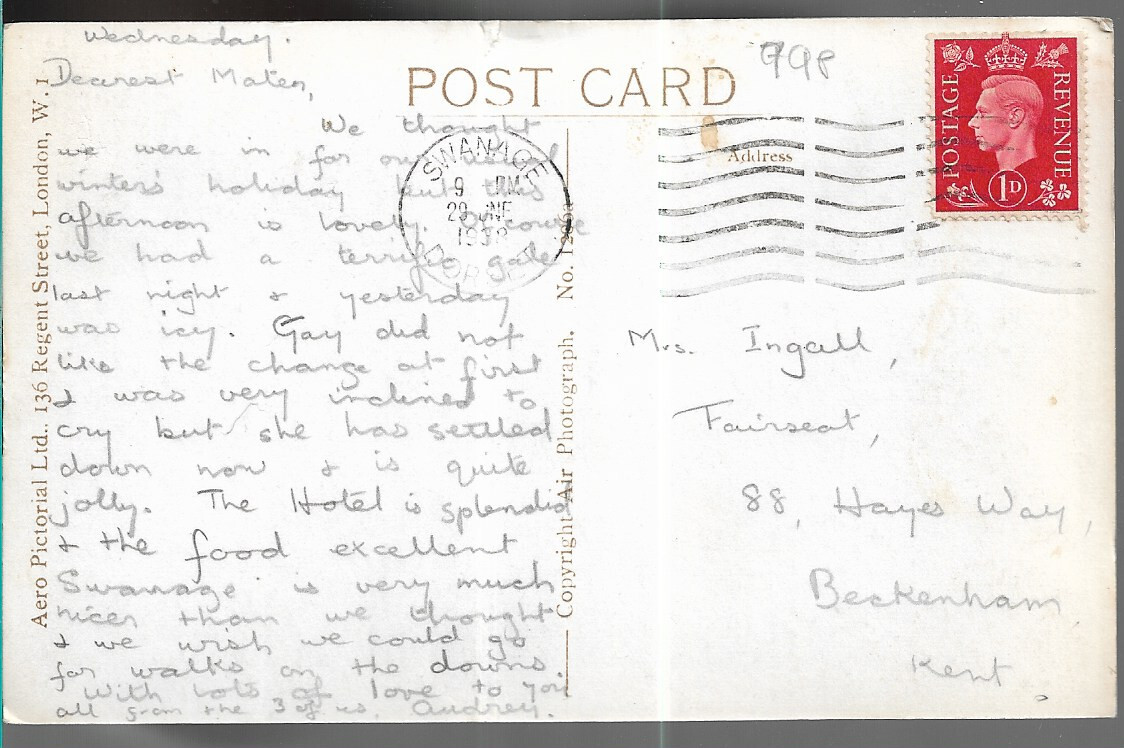 Wednesday.
Dearest Mater,
We thought
we were in for our
winter's holiday but this
afternoon is lovely. Of course
we had a terrific gale
last night & yesterday
was icy. Gay did not
like the change at first
& was very inclined to
cry but she has settled
down now & is quite
jolly. The Hotel is splendid
& the food excellent
Swanage is very much
nicer than we thought
& we wish we could go
for walks on the downs.
With lots of love to you
all from the 3 of us. Audrey.
Aero Pictorial Ltd., 136 Regent Street, London, W. 1
POST CARD
SWANAGE
9 PM
29 JNE
Copyright Air Photograph. No.
Address
99p
POSTAGE REVENUE
1D
Mrs. Ingall,
Fairseat,
88, Hayes Way,
Beckenham
Kent